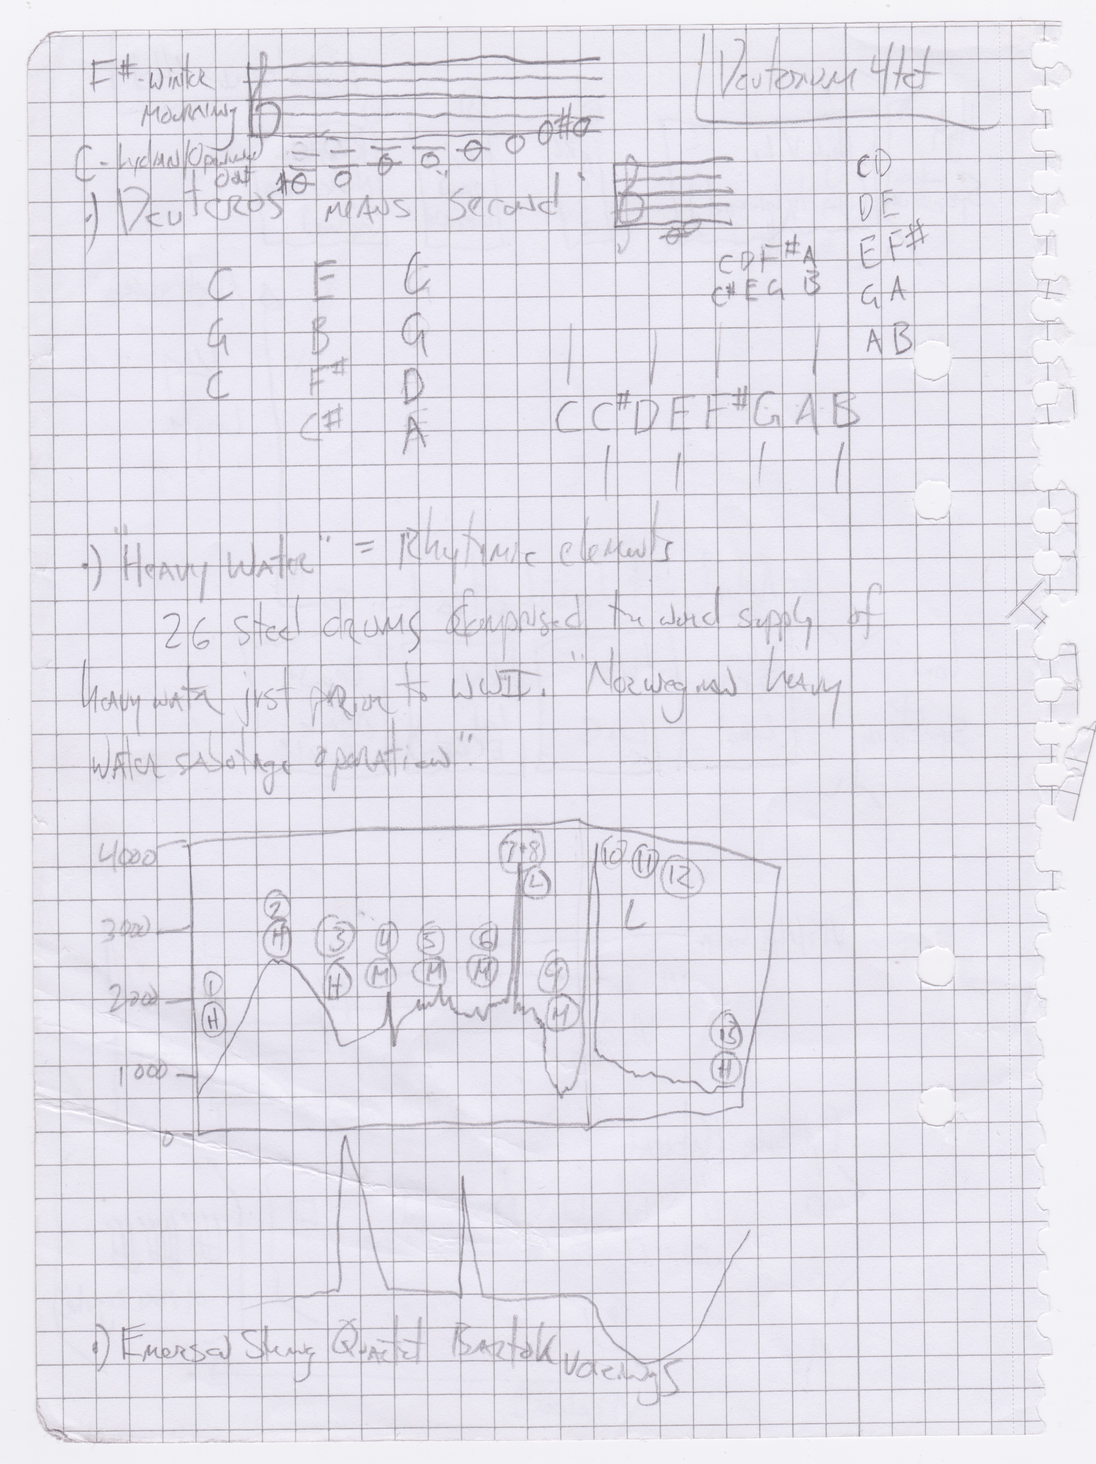 Deuterium 4tet
F# - Winter
Mourning
C - Lydian/Opening
out
.) "Deuteros" means "Second"
CD
DE
EF#
GA
AB
C D F# A
C# E G B
C E C
G B G
C F# D
C# A
C C# D E F# G A B
.) "Heavy Water" = Rhythmic elements
26 steel drums comprised the world supply of
heavy water just prior to WWII. "Norwegian heavy
water sabotage operation".
4000
3000
2000
1000
0
1 H
2 H
3 H
4 M
5 M
6 M
7+8 L
9 M
10 11 12
L
13 H
.) Emerson String Quartet Bartok voicings